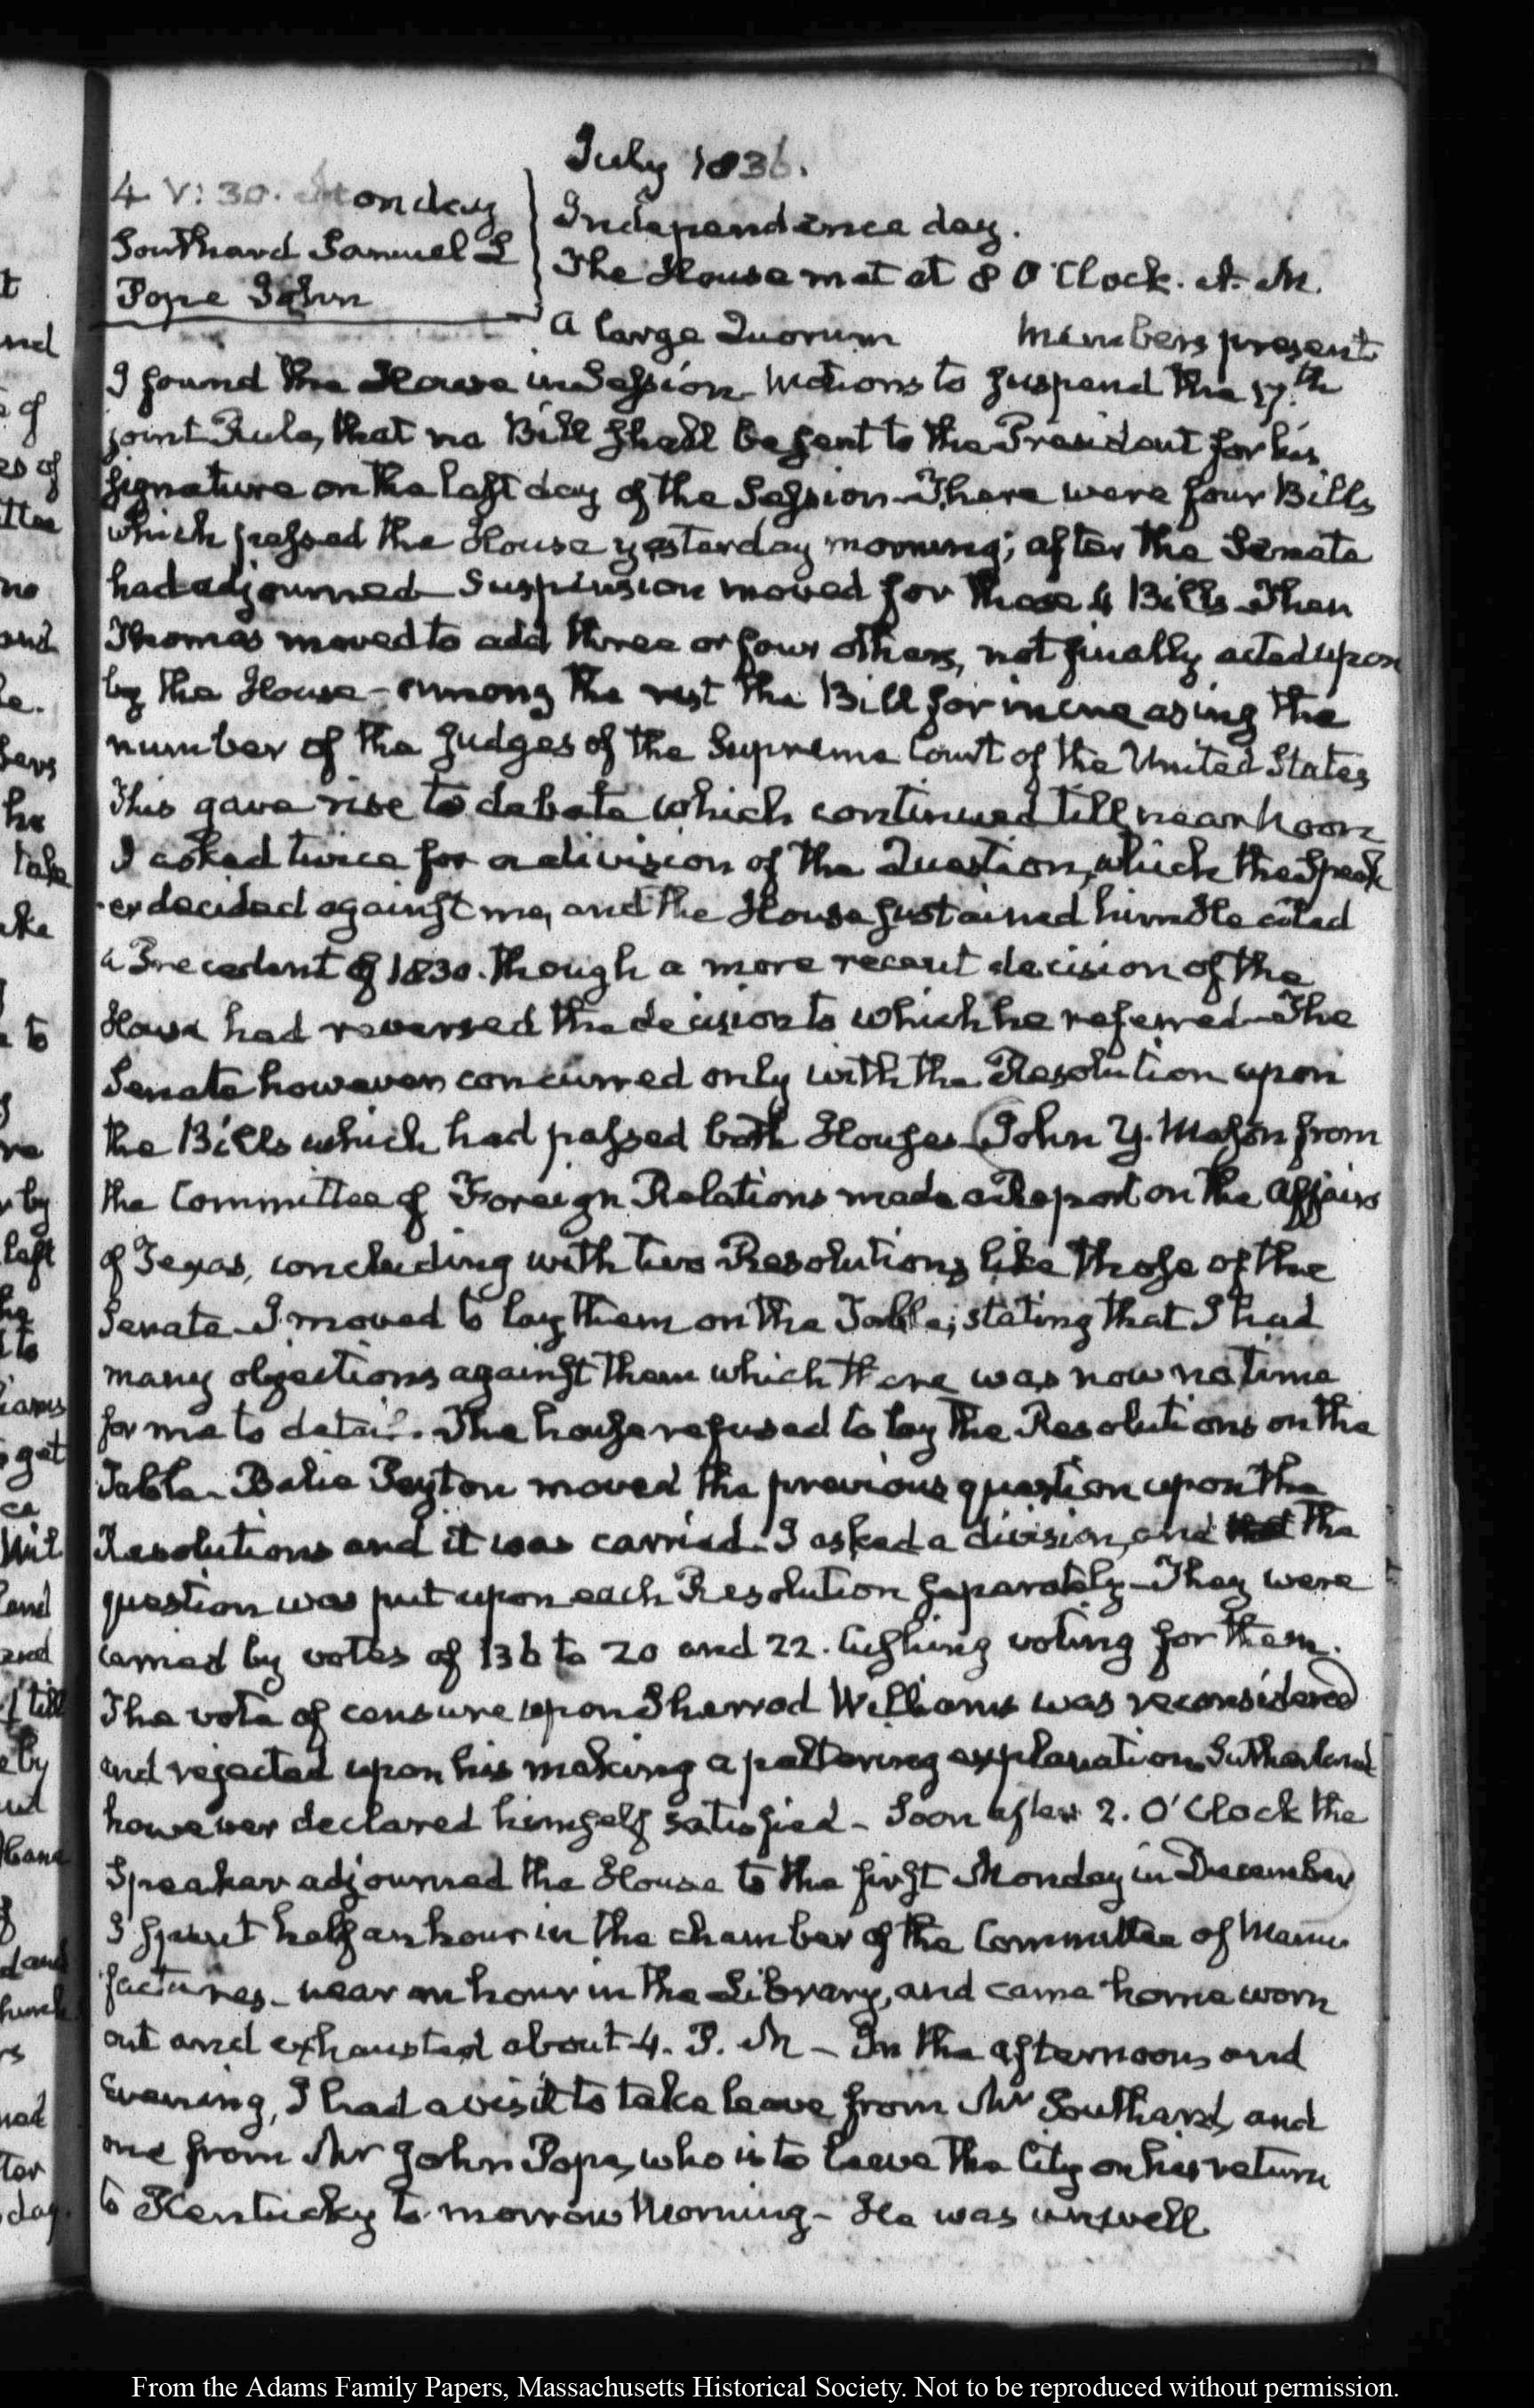 July 1836.
4 V: 30. Monday
Southard Samuel L
Pope John
Independence day.
The House met at 8 O'Clock. A. M.
a large Quorum Members present
I found the House in Session. Motions to suspend the 17.th
joint Rule, that no Bill shall be sent to the President for his
signature on the last day of the Session. There were four Bills
which passed the House yesterday morning; after the Senate
had adjourned Suspension moved for those 4 Bills. Then
Thomas moved to add three or four others, not finally acted upon
by the House – among the rest the Bill for increasing the
number of the Judges of the Supreme Court of the United States
This gave rise to debate which continued till near Noon
I asked twice for a division of the Question, which the Speak
er decided against me, and the House sustained him. He cited
a Precedent of 1830. though a more recent decision of the
House had reversed the decision to which he referred – The
Senate however concurred only with the Resolution upon
the Bills which had passed both Houses – John Y. Mason from
the Committee of Foreign Relations made a Report on the affairs
of Texas, concluding with two Resolutions like those of the
Senate – I moved to lay them on the Table; stating that I had
many objections against them which there was now no time
for me to detail. The house refused to lay the Resolutions on the
Table – Balie Peyton moved the previous question upon the
Resolutions and it was carried. I asked a division, and the
question was put upon each Resolution separately – They were
carried by votes of 136 to 20 and 22. Cushing voting for them.
The vote of censure upon Sherrod Williams was reconsidered
and rejected upon his making a paltering explanation. Sutherland
however declared himself satisfied – Soon after 2. O'Clock the
Speaker adjourned the House to the first Monday in December
I spent half an hour in the chamber of the Committee of Manu
factures – near an hour in the Library, and came home worn
out and exhausted about 4. P. M – In the afternoon and
Evening, I had a visit to take leave from Mr Southard, and
one from Mr John Pope, who is to leave the City on his return
to Kentucky to-morrow Morning – He was unwell
From the Adams Family Papers, Massachusetts Historical Society. Not to be reproduced without permission.